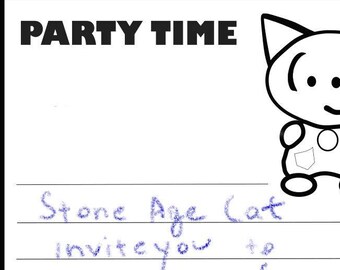 PARTY TIME
Stone Age Cat
invite you to